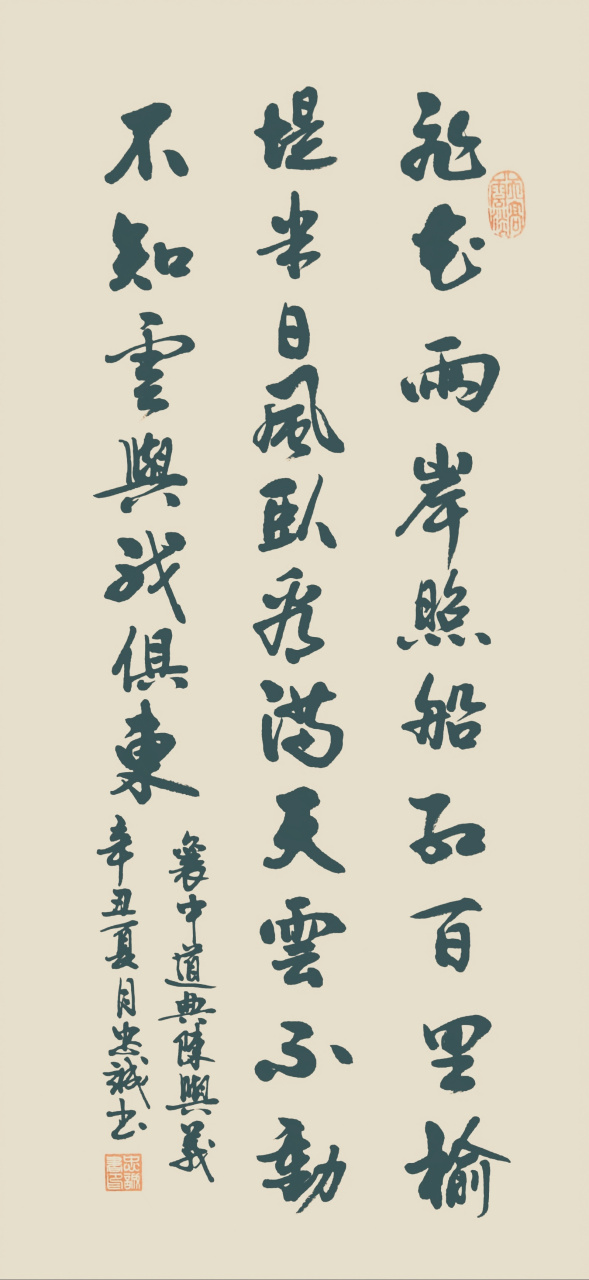 飛花兩岸照船紅百里榆
堤半日風臥看滿天雲不動
不知雲與我俱東
襄中道典陳與義
辛丑夏月忠誠書
忠誠
書印